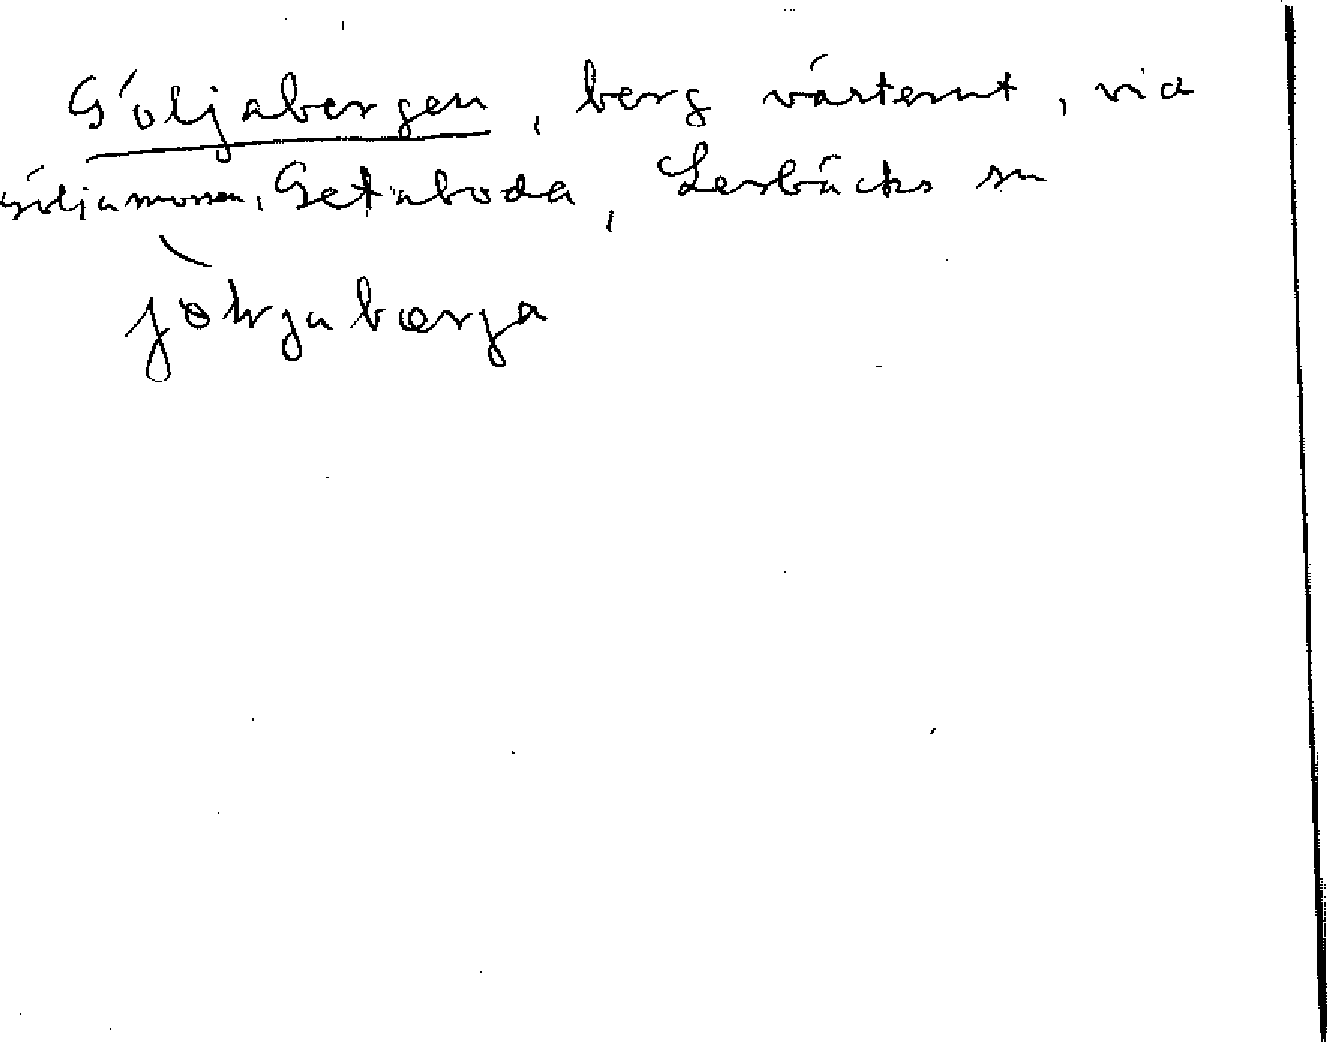 Göljabergen, berg västerut, vid
Göljamossen, Getaboda, Lerbäcks sn
jöɬjabærja